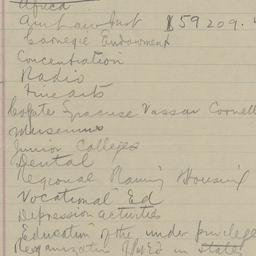 Africa
Amt am just $59209.
Carnegie Endowment
Concentration
Radio
Fine arts
Colgate Syracuse Vassar Cornell
Museums
Junior Colleges
Dental
Regional Planning Housing
Vocational Ed
Depression activities
Education of the under privilege
Reorganization of Ed in states